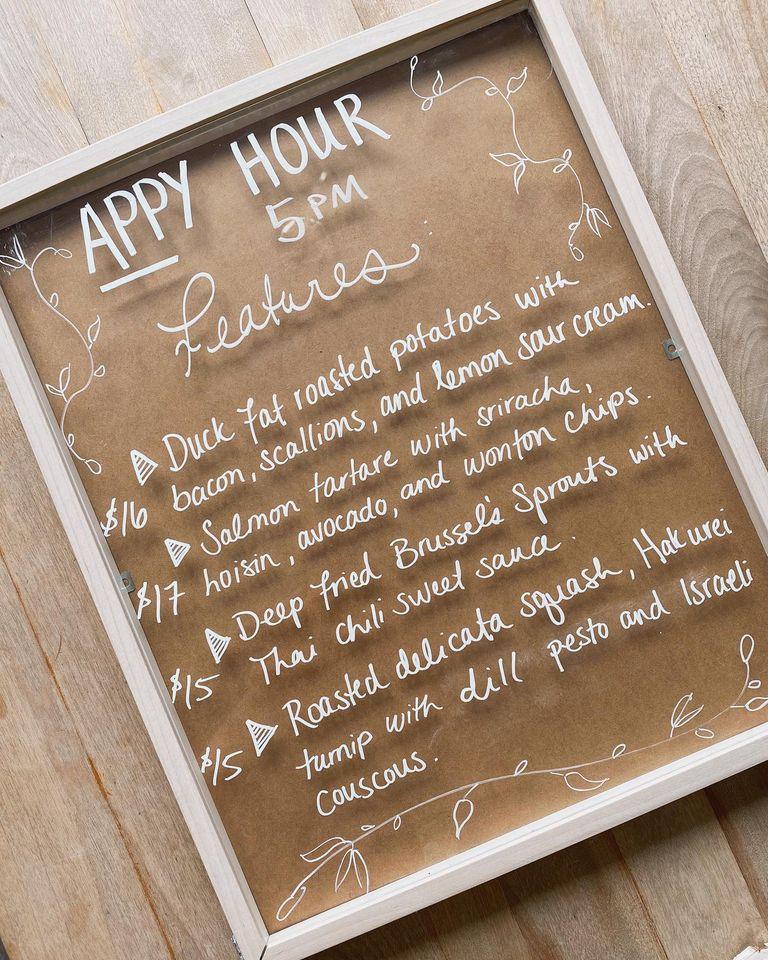 APPY HOUR
5PM
Features:
Duck fat roasted potatoes with
$16 bacon, scallions, and lemon sour cream.
Salmon tartare with sriracha,
$17 hoisin, avocado, and wonton chips.
Deep fried Brussel's Sprouts with
$15 Thai chili sweet sauce.
Roasted delicata squash, Hakurei
$15 turnip with dill pesto and Israeli
couscous.